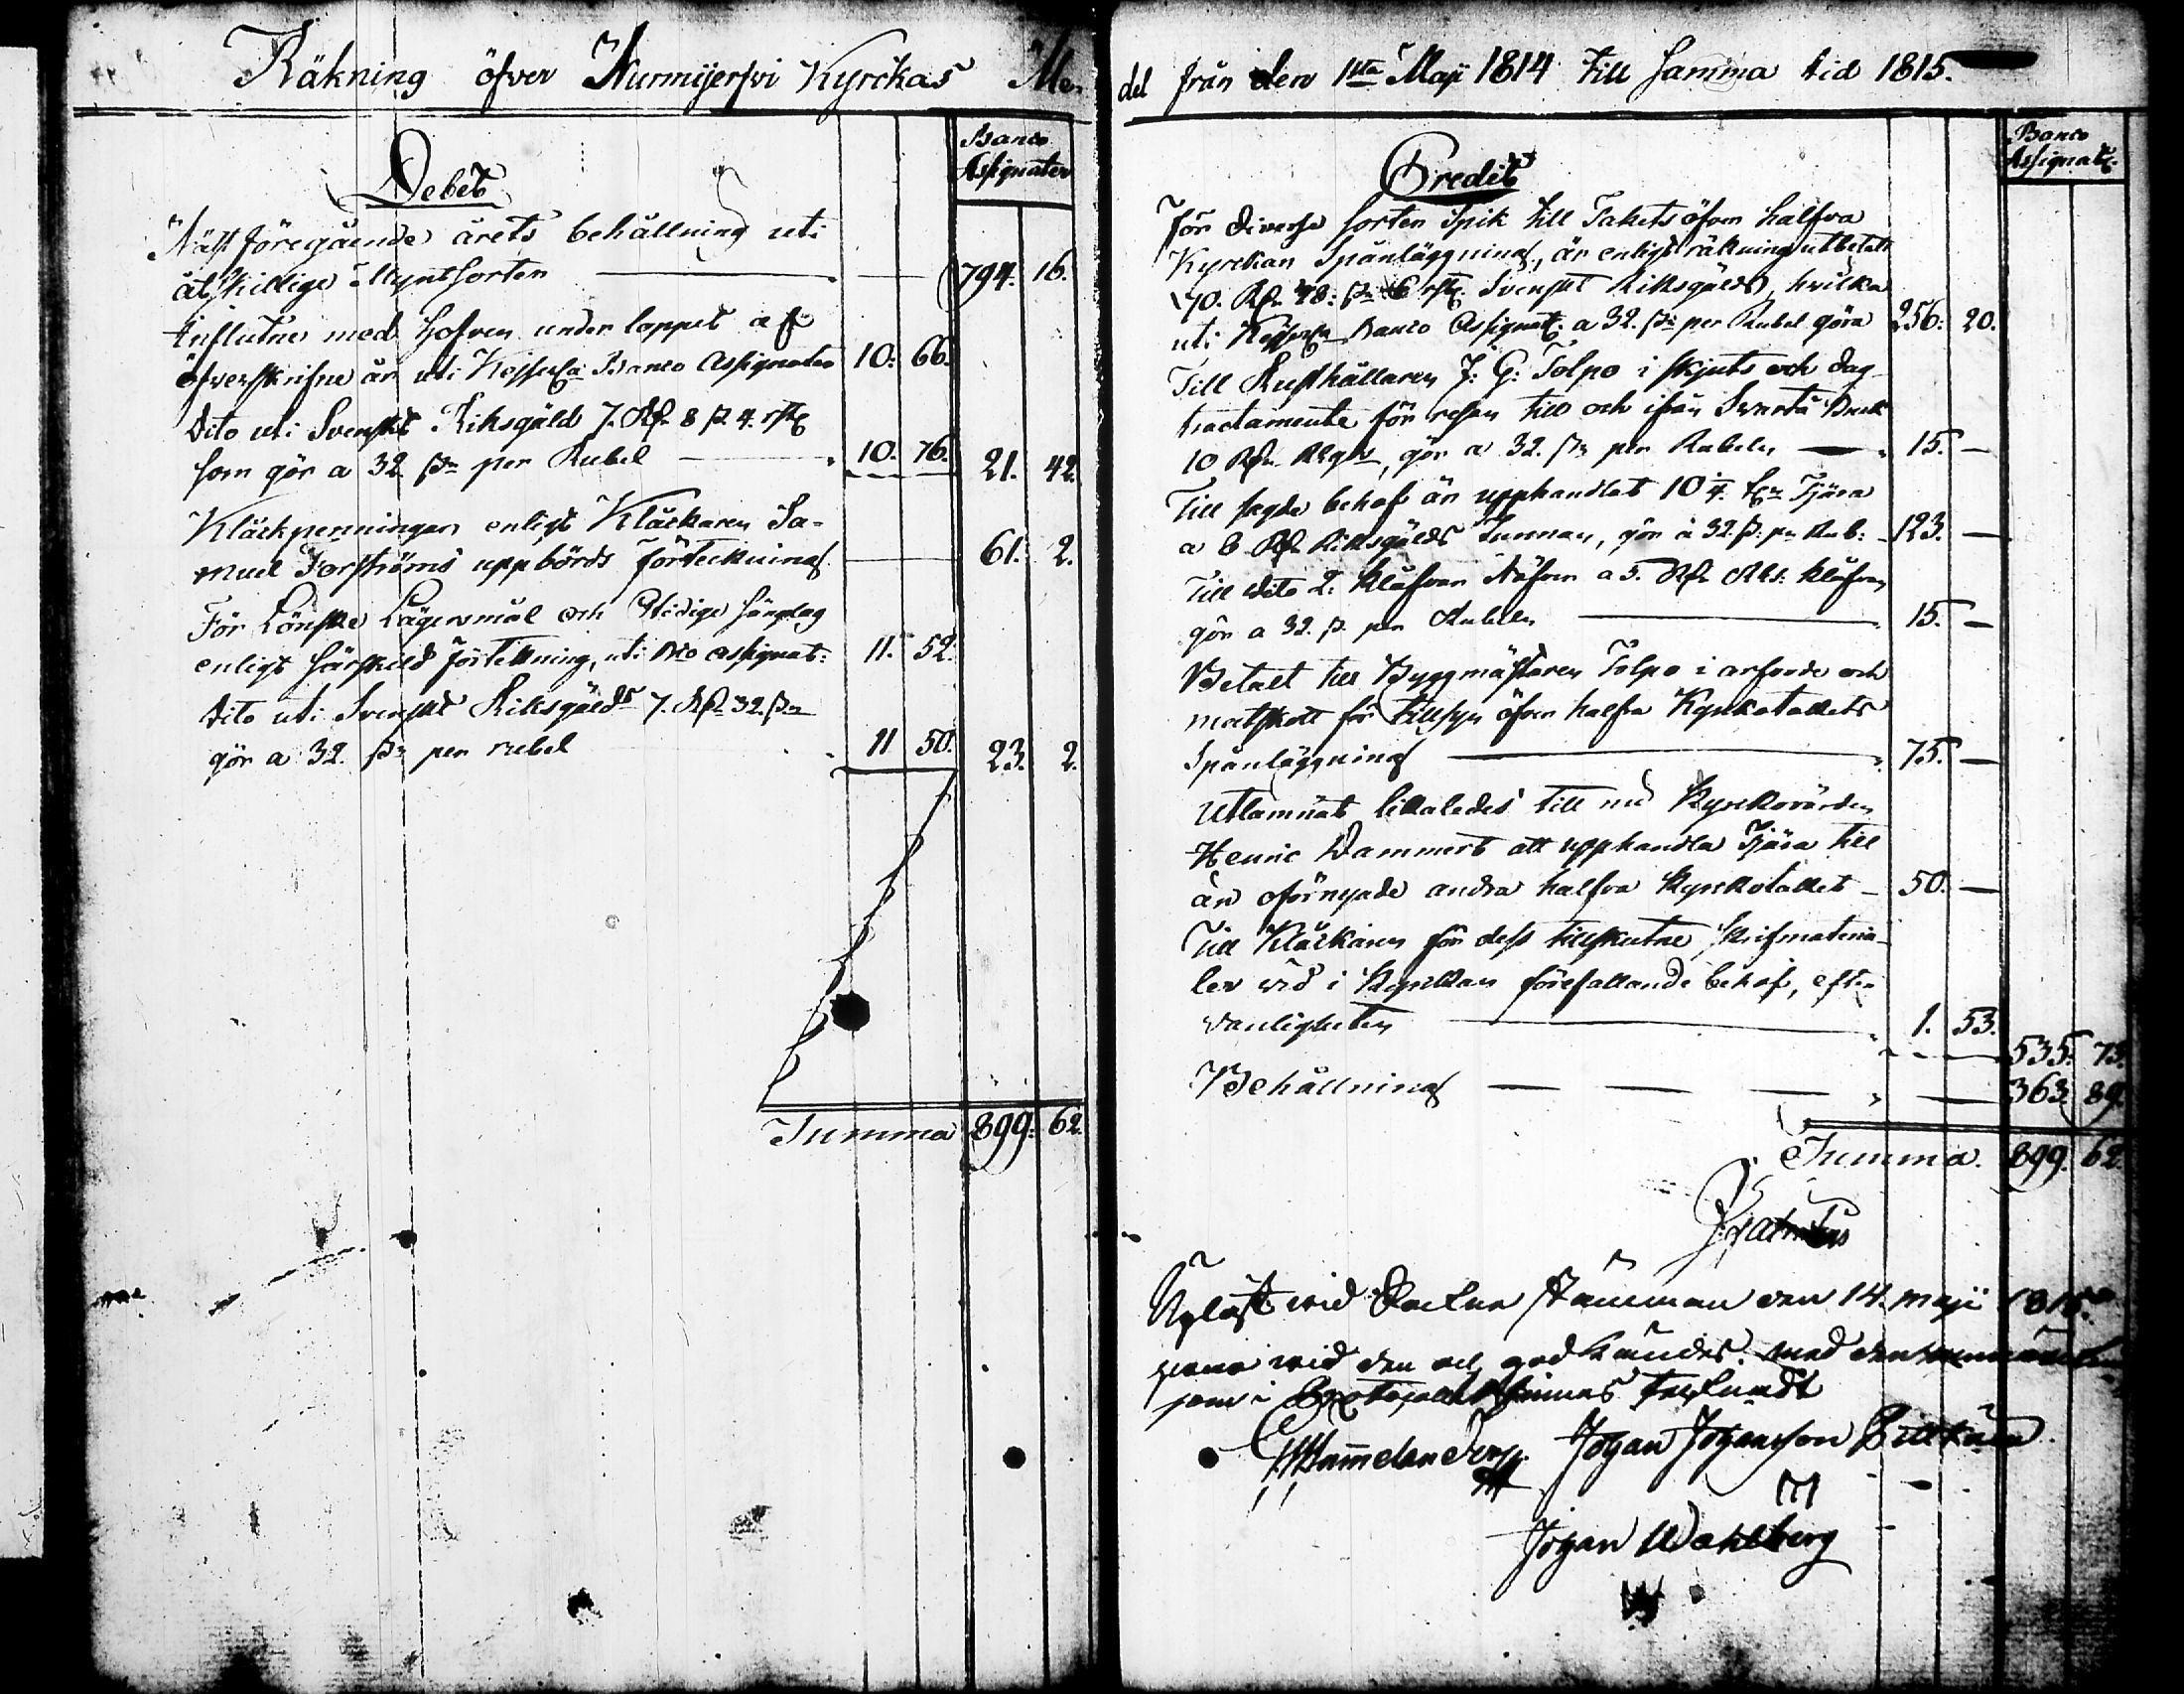 Räkning öfver Nurmijerfvi Kyrckas Me
del från den 1sta Maji 1814 till samma tid 1815.
Debet
Banco
Assignater
Näst föregående årets behållning uti
åtskillige Myntsorter 794. 16.
Influtne med Hofven under loppet af
öfverskrifne år uti Kejserl: Banco Assignater 10. 66.
Dito uti Svenskt Riksgäld 7. Rd. 8 s. 4. rst
som gör a 32 s. per Rubel 10. 76. 21. 42.
Kläckpenningar enligt Kläckaren Sa-
muel Forströms uppbörds förteckning 61. 2.
För Lönske Lägersmål och Otidige sänglag
enligt särskild förteckning, uti Bco assignat: 11. 52.
Dito uti Svenskt Riksgälds 7. Rd. 32. s.
gör a 32. s. per rubel 11 50. 23. 2.
Summa 899. 62
Credit
Banco
Assignat:
För diverse sorter Spik till Takets öfver halfva
Kyrckan Spånläggning, är enligt räkning utbetalt
Rd. 48: s. 6 rst. Svenskt Riksgälds, hvilka
uti Kejserl Banco Assignat: a 32. s. per Rubel göra 256. 20.
Till Rusthållaren J: G: Tolpo i skjuts och dag-
tractamente för resan till och ifrån Svartå Bruk
10 Rd. Rgs, gör a 32. s. per Rubeln 15. —
Till sagde behof är upphandlat 10 1/4 t:r Tjära
a 8 Rd. Riksgälds Tunnan, gör à 32 s: per Rub: 123. —
Till dito 2. Klåfvar Näfver a 5. Rd. Rks. klåfven
gör a 32. s. per Rubeln 15. —
Betalt till Byggmästaren Tolpo i arfvode och
matskott för tillsyn öfver halfva Kyrkotakets
Spånläggning 75. —
Utlämnat likaledes till Kyrckovärden
Henric Dammert att upphandla Tjära till
än oförnyade andra halfva Kyrckotaket 50. —
Till Kläckaren för dess tillskutne Skrifmateria-
ler vid i Kyrckan förefallande behof, efter
vanligheten 1. 53.
535. 73.
Behållning 363. 89.
Summa. 899. 62
Upläst wid Sockne stämman den 14. maji 1815
godkändes. med
som i finnes
Johan Johansson
Johan Wahlberg